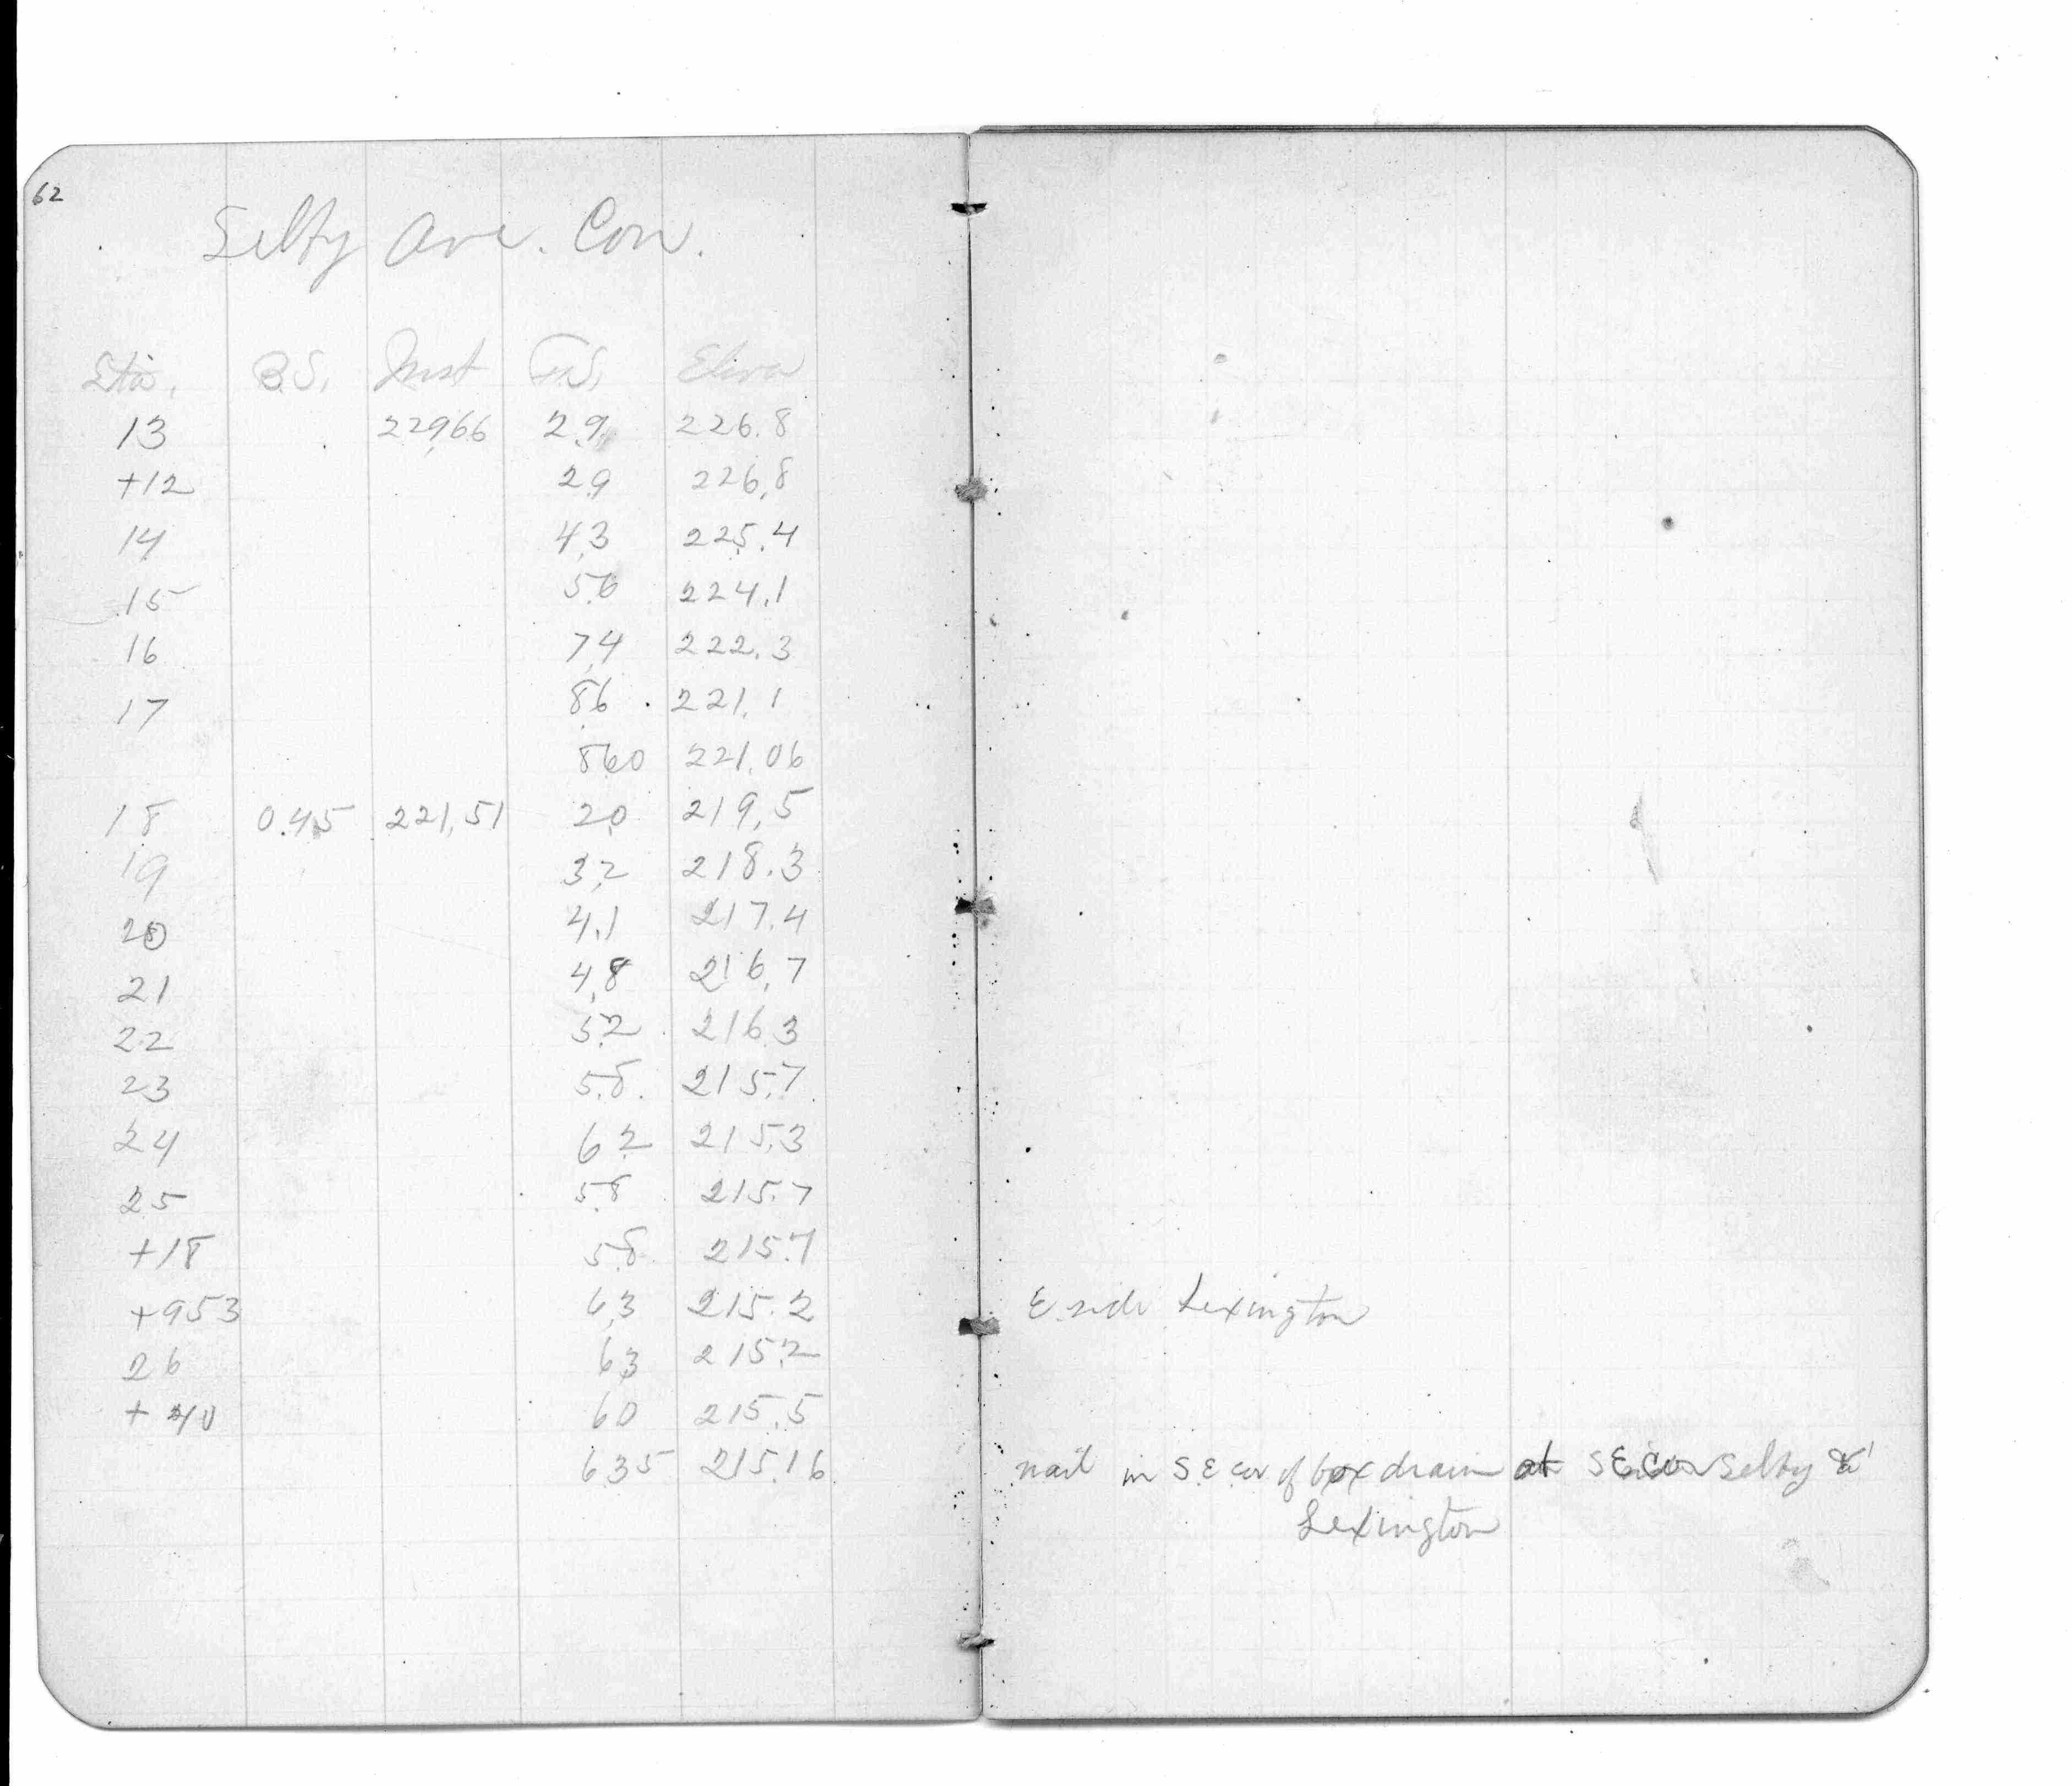 62
Selby Ave. Con.
Sta. B.S. Inst F.S. Eleva
13 229.66 2.9 226.8
+12 2.9 226.8
14 4.3 225.4
15 5.6 224.1
16 7.4 222.3
17 8.6 221.1
8.60 221.06
18 0.45 221.51 2.0 219.5
19 3.2 218.3
20 4.1 217.4
21 4.8 216.7
22 5.2 216.3
23 5.8 215.7
24 6.2 215.3
25 5.8 215.7
+18 5.8 215.7
+953 6.3 215.2 E. side Lexington
26 6.3 215.2
+40 6.0 215.5
6.35 215.16 nail in S.E. cor of box drain at S.E. cor Selby &
Lexington